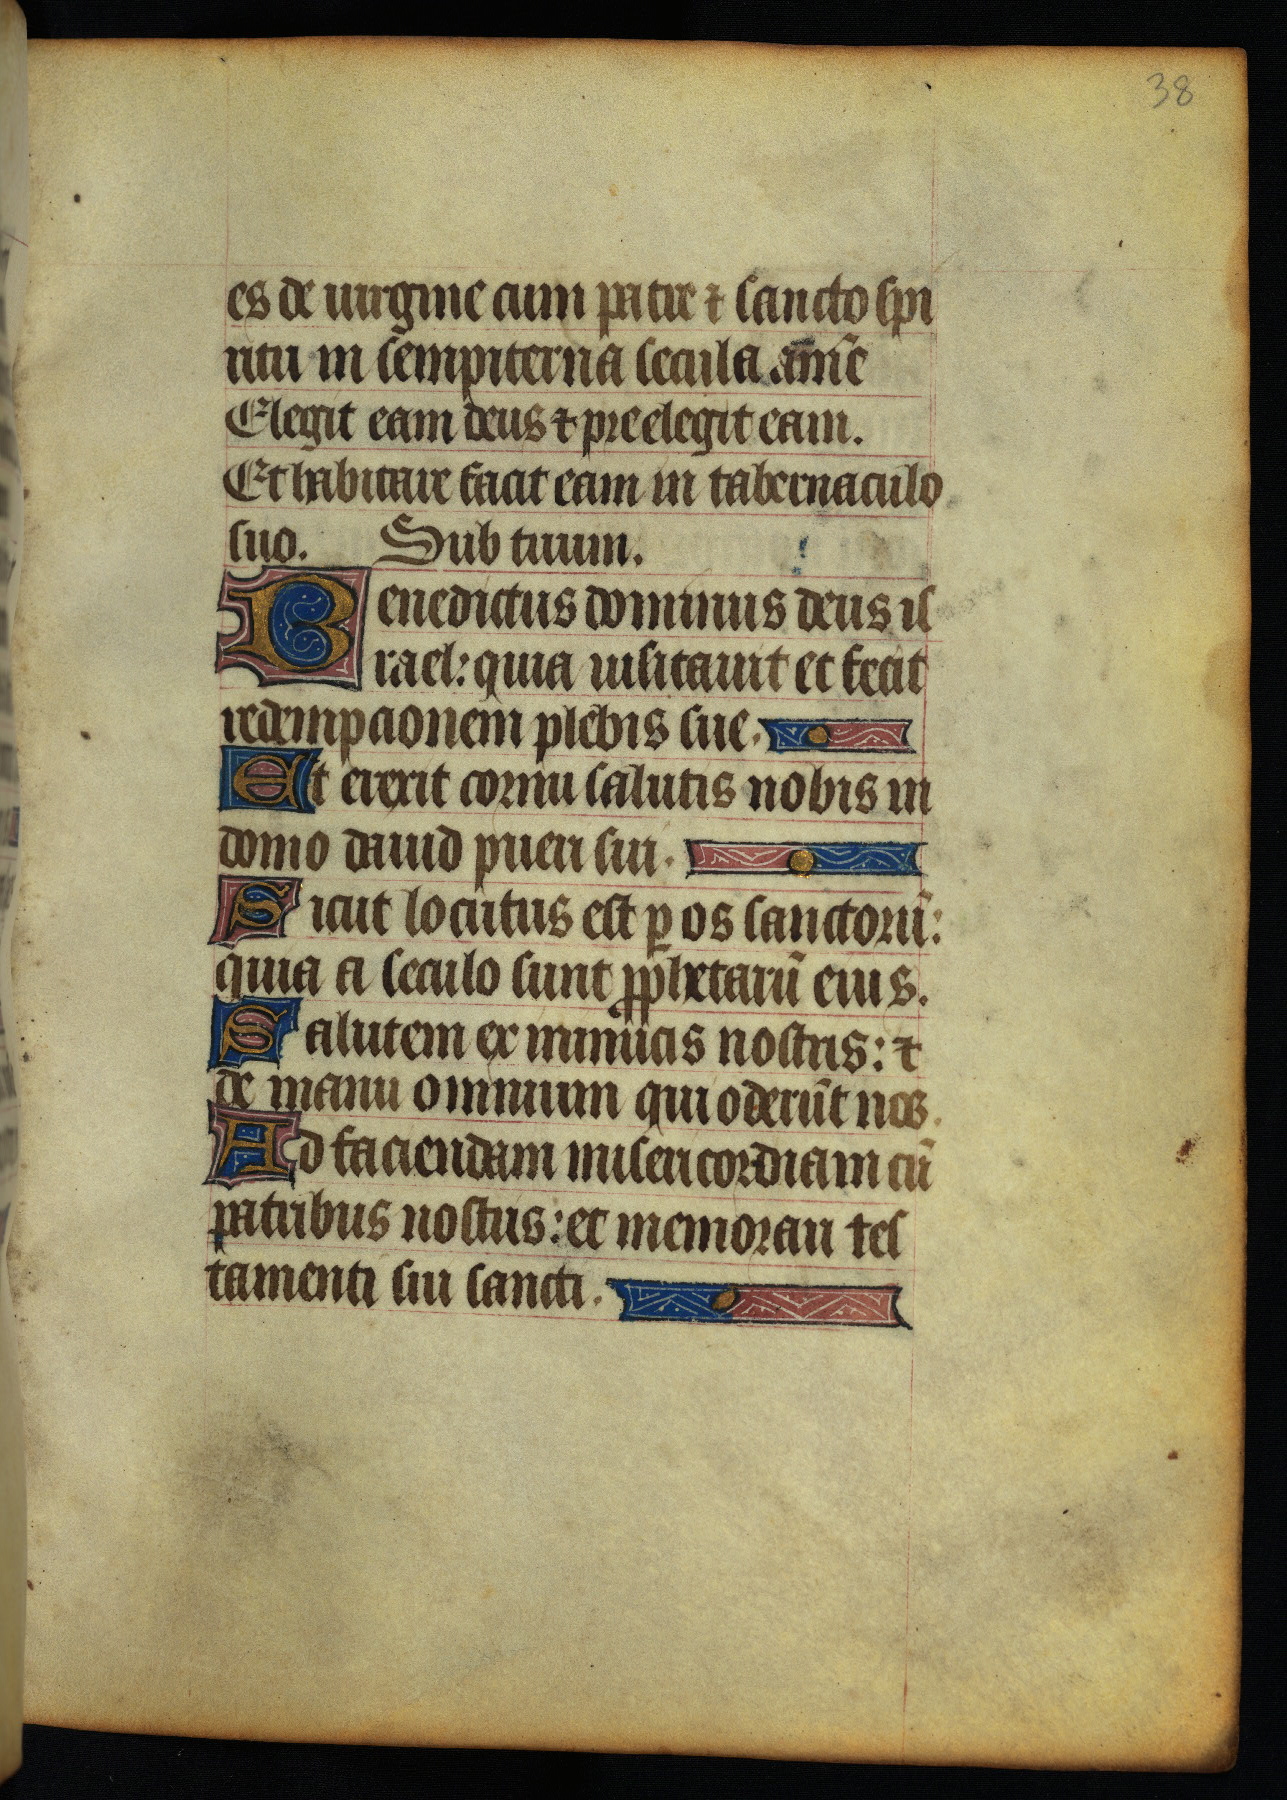 38
es de uirgine cum patre ⁊ sancto spi
ritu in sempiterna secula amē
Elegit eam deus ⁊ preelegit eam.
Et habitare facit eam in tabernaculo
suo. Sub tuum.
Benedictus dominus deus is
rael: quia uisitauit et fecit
redempcionem plebis sue.
Et erexit cornu salutis nobis in
domo dauid pueri sui.
Sicut locutus est ꝑ os sanctorū:
quia a seculo sunt ꝓphetarū eius.
Salutem ex inimicis nostris: ⁊
de manu omnium qui oderūt nos.
Ad faciendam misericordiam cū
patribus nostris: et memorari tes
tamenti sui sancti.